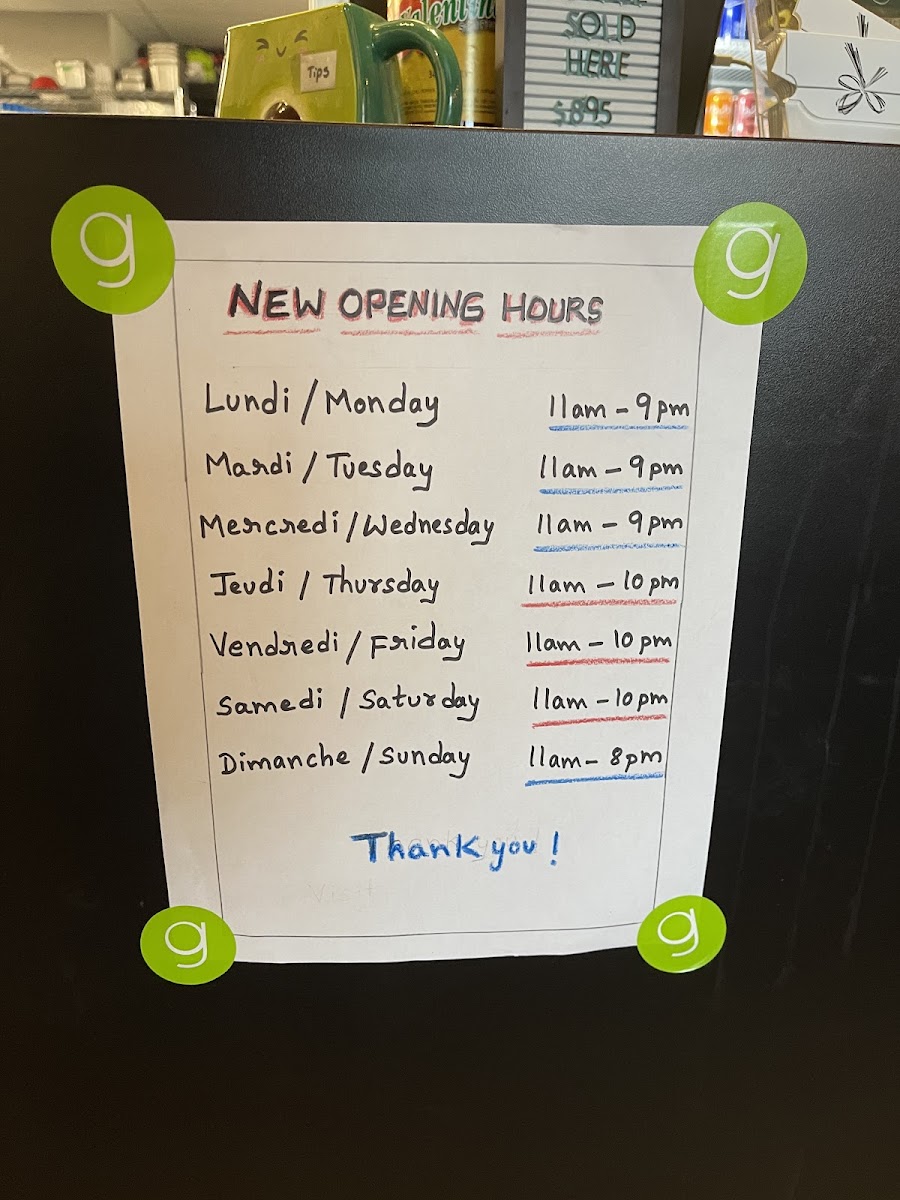 Tips
SOLD
HERE
$8.95
g
g
NEW OPENING HOURS
Lundi / Monday 11am - 9pm
Mardi / Tuesday 11am - 9pm
Mercredi / Wednesday 11am - 9pm
Jeudi / Thursday 11am - 10pm
Vendredi / Friday 11am - 10pm
Samedi / Saturday 11am - 10pm
Dimanche / Sunday 11am - 8pm
Thank you !
Visit
g
g